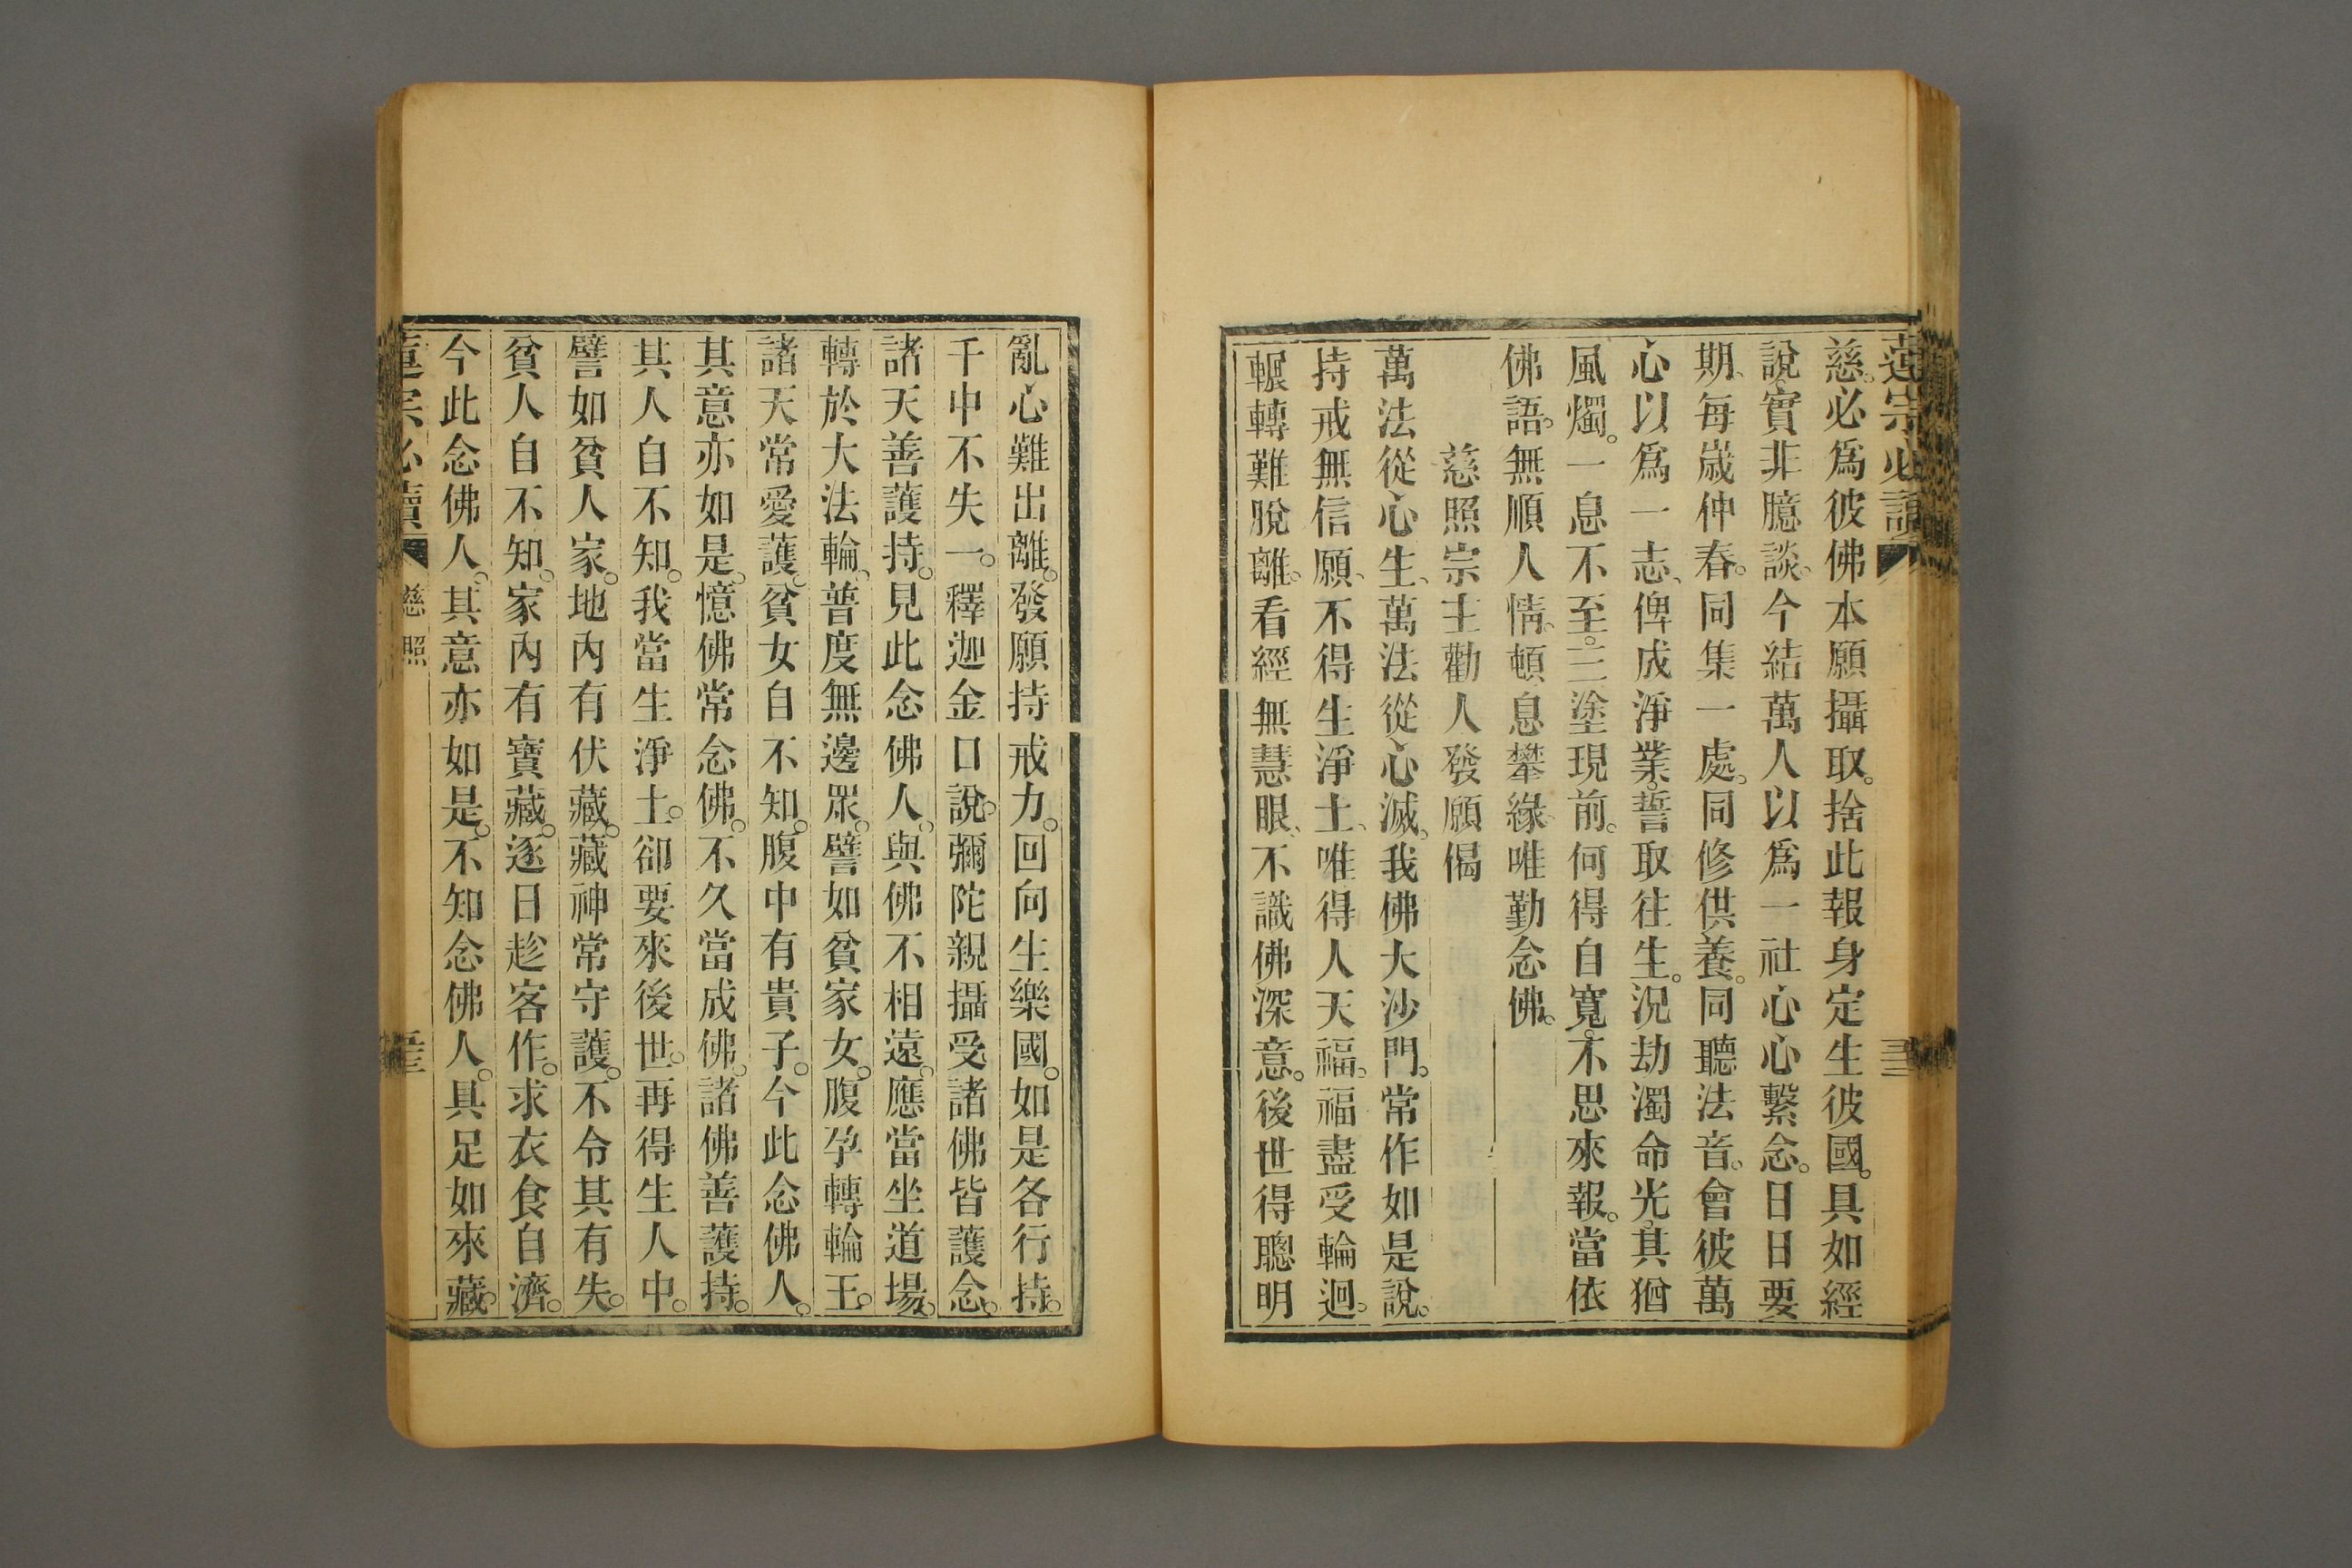 蓮宗必讀
慈。必爲彼佛本願攝取。捨此報身定生彼國。具如經
說。實非臆談。今結萬人以爲一社心心繫念。日日要
期、每歲仲春。同集一處。同修供養。同聽法音。會彼萬
心以爲一志、俾成淨業。誓取往生。況劫濁命光。其猶
風燭。一息不至。三塗現前。何得自寬。不思來報。當依
佛語。無順人情。頓息攀緣。唯勤念佛。
慈照宗主勸人發願偈
萬法從心生、萬法從心滅。我佛大沙門。常作如是說。
持戒無信願、不得生淨土、唯得人天福。福盡受輪迴。
輾轉難脫離。看經無慧眼、不識佛深意。後世得聰明
亂心難出離。發願持戒力。回向生樂國。如是各行持。
千中不失一。釋迦金口說。彌陀親攝受。諸佛皆護念。
諸天善護持。見此念佛人。與佛不相遠。應當坐道場。
轉於大法輪。普度無邊眾。譬如貧家女。腹孕轉輪王。
諸天常愛護。貧女自不知。腹中有貴子。今此念佛人。
其意亦如是。憶佛常念佛。不久當成佛。諸佛善護持。
其人自不知。我當生淨土。卻要來後世。再得生人中。
譬如貧人家。地內有伏藏。藏神常守護。不令其有失。
貧人自不知。家內有寶藏。逐日趁客作。求衣食自濟。
今此念佛人。其意亦如是。不知念佛人。具足如來藏。
蓮宗必讀 慈照